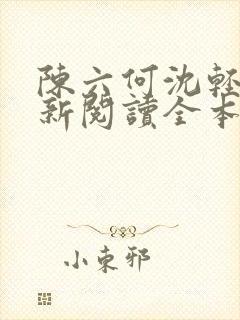 陳六何沈輕
新閱讀全本
小東邪